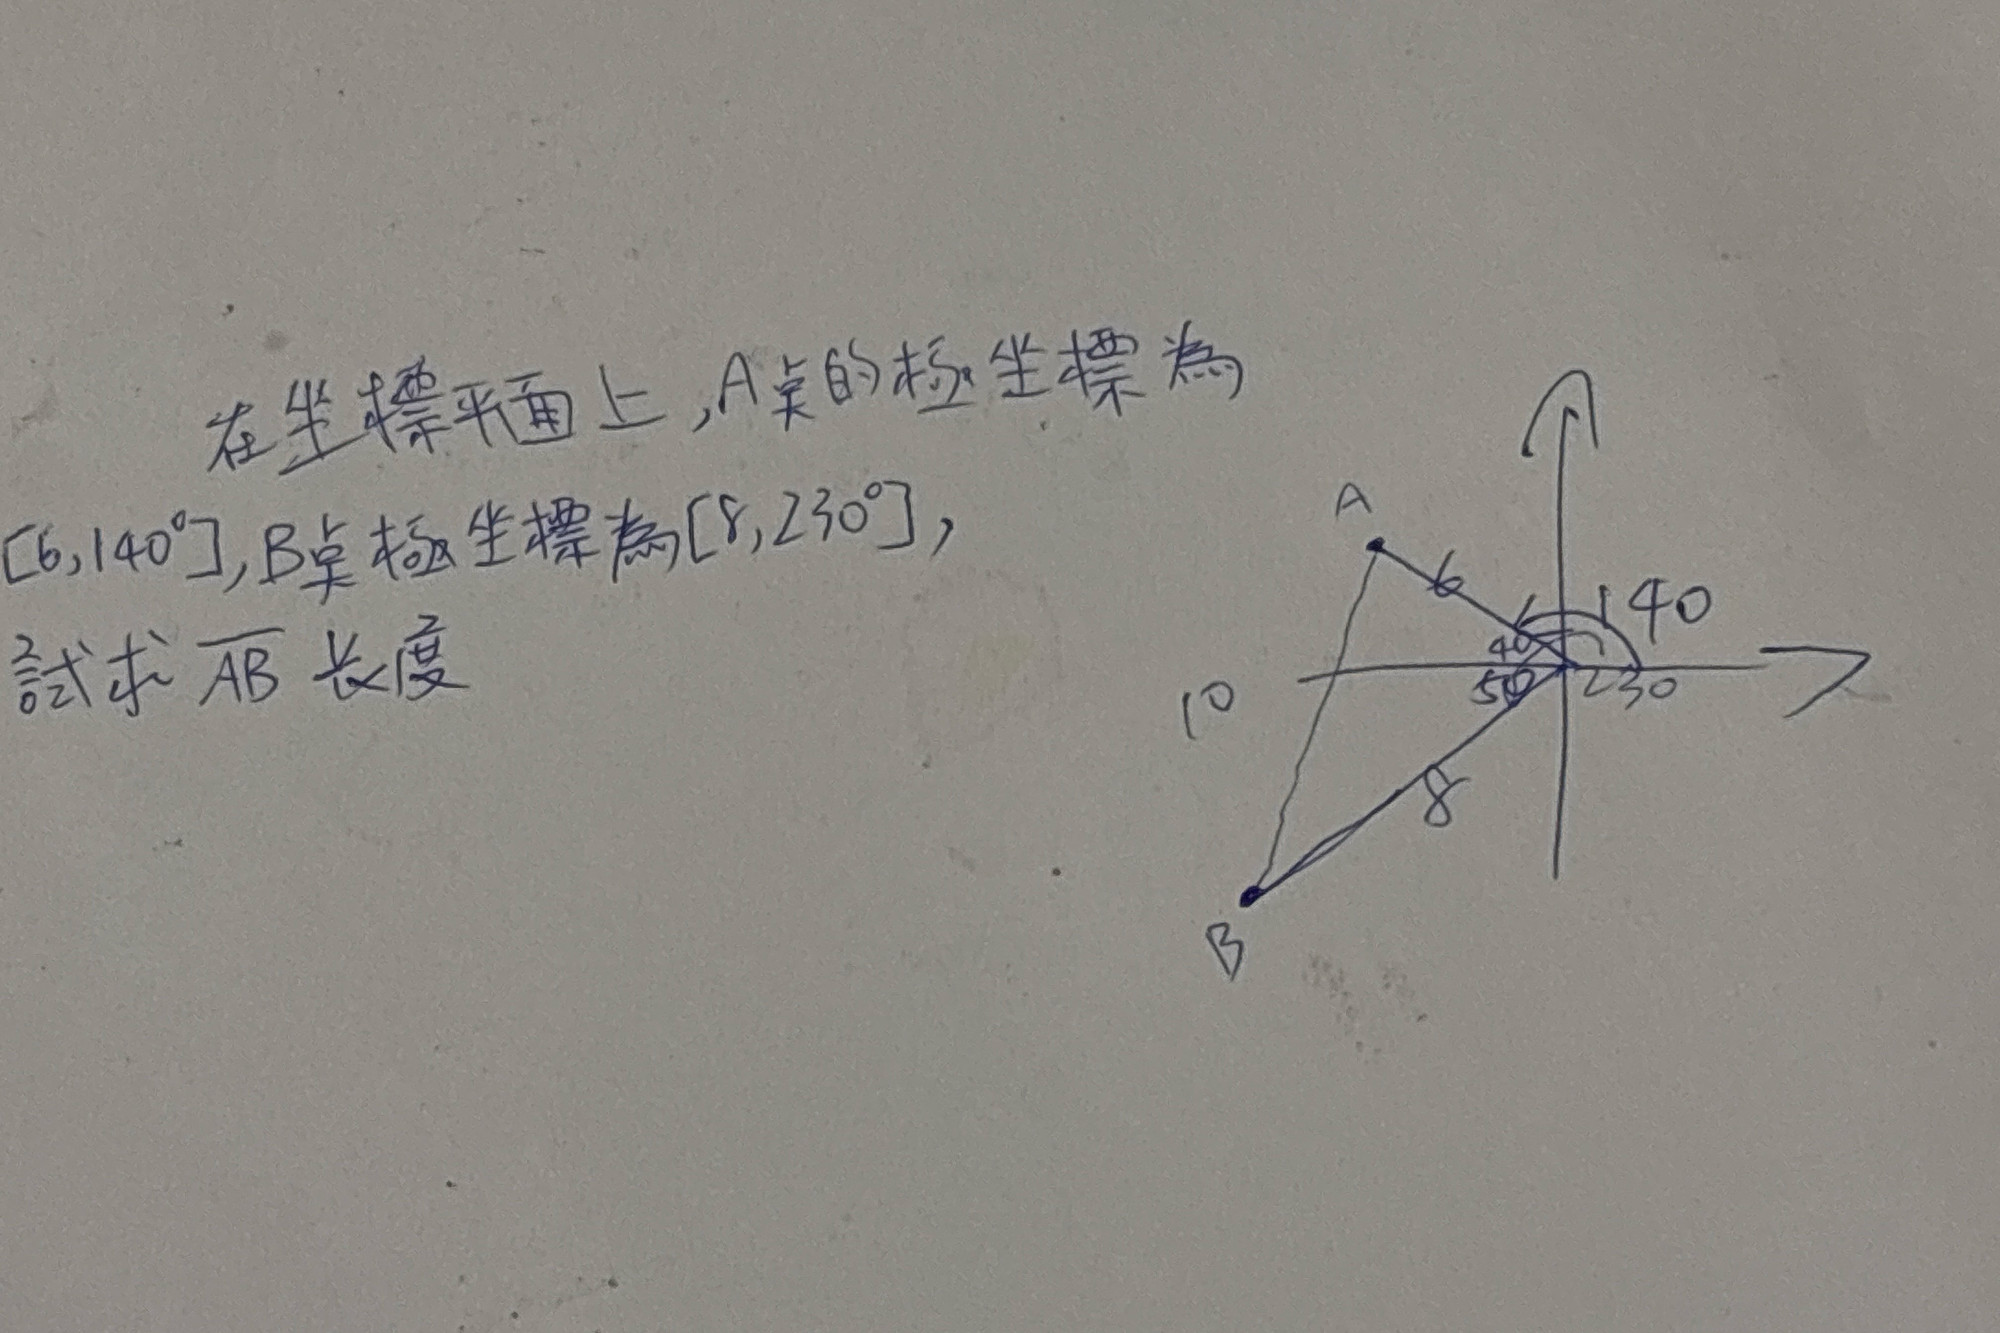 在坐標平面上,A點的極坐標為
[6,140°],B點極坐標為[8,230°],
試求 AB 長度
A
6
140
40
50
230
10
8
B